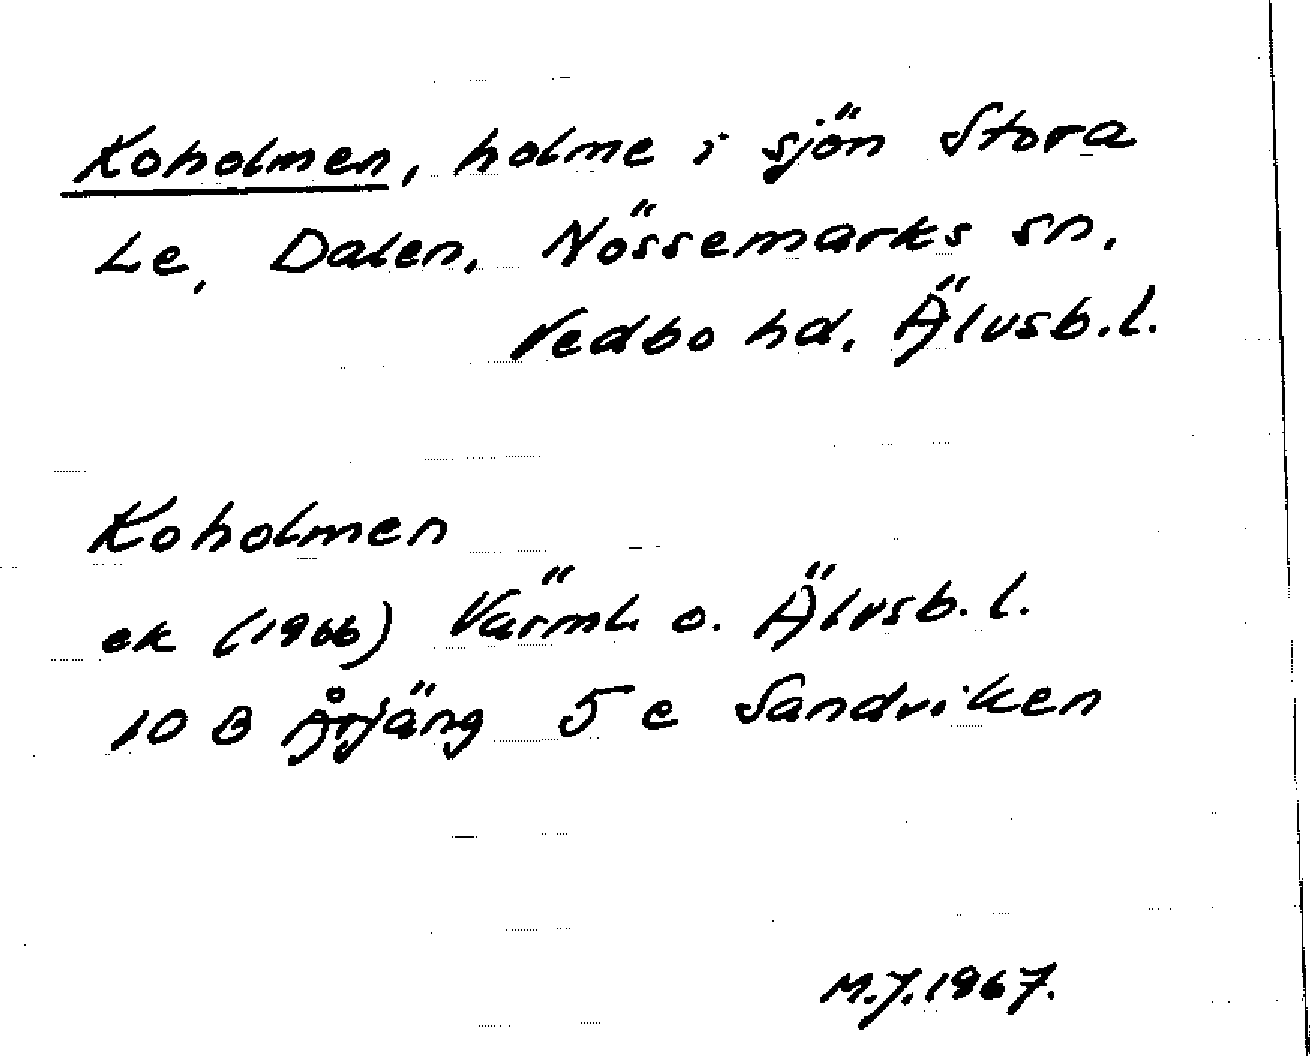 Koholmen, holme i sjön Stora
Le, Dalen, Nössemarks sn.
Vedbo hd. Älvsb. l.
Koholmen
ek (1966) Värml. o. Älvsb. l.
10 B Årjäng 5 e Sandviken
M.J. 1967.